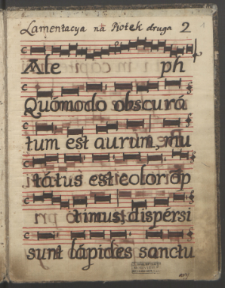 Lamentacya na Piotek druga 2
Ale ph
Quomodo obscura
tum est aurum, mu
tatus est color op
timus; dispersi
sunt lapides sanctu